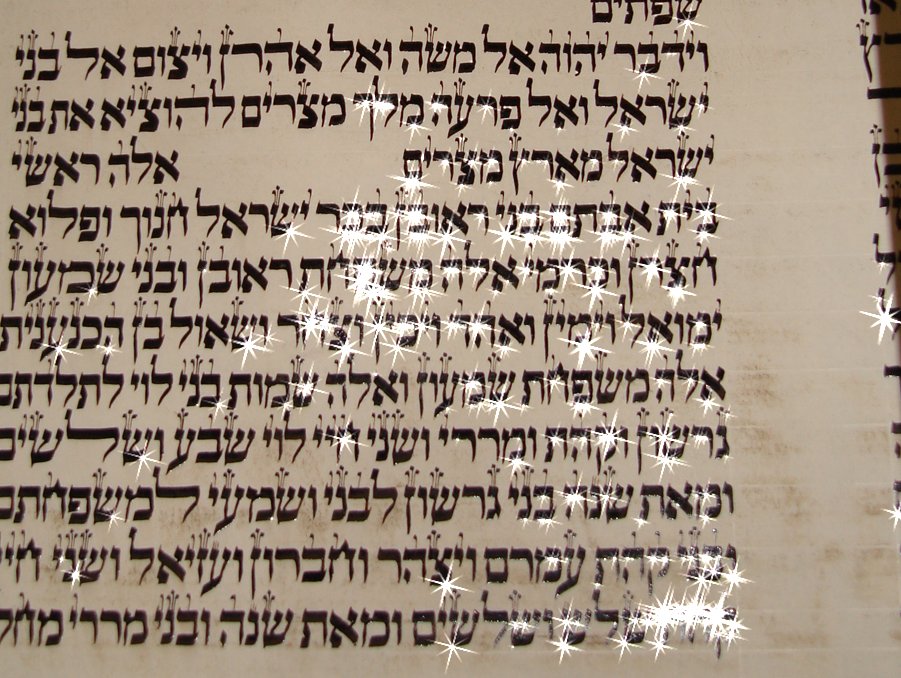 שפתים
וידבר יהוה אל משה ואל אהרן ויצום אל בני
ישראל ואל פרעה מלך מצרים להוציא את בני
ישראל מארץ מצרים אלה ראשי
בית אבתם בני ראובן בכר ישראל חנוך ופלוא
חצרן וכרמי אלה משפחת ראובן ובני שמעון
ימואל וימין ואהד ויכין וצחר ושאול בן הכנענית
אלה משפחת שמעון ואלה שמות בני לוי לתלדתם
גרשון וקהת ומררי ושני חיי לוי שבע ושלשים
ומאת שנה בני גרשון לבני ושמעי למשפחתם
ובני קהת עמרם ויצהר וחברון ועזיאל ושני חיי
קהת שלש ושלשים ומאת שנה ובני מררי מחל